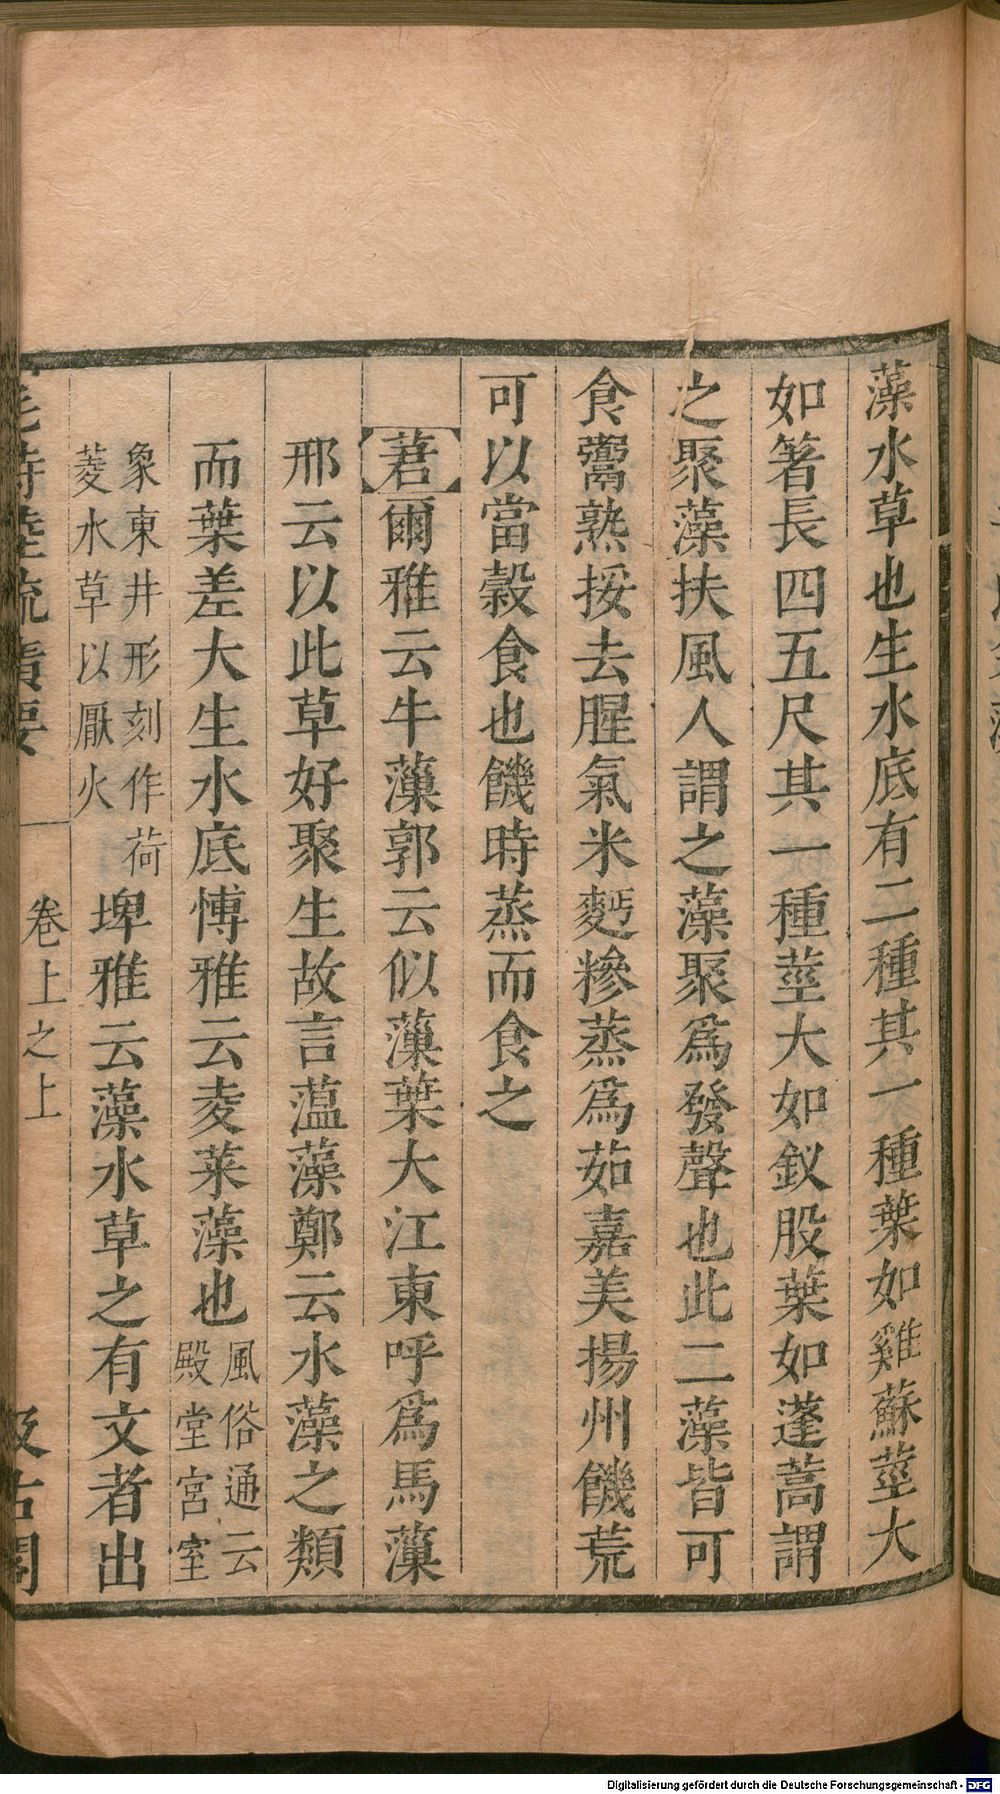 藻水草也生水底有二種其一種葉如雞蘇莖大
如箸長四五尺其一種莖大如釵股葉如蓬蒿謂
之聚藻扶風人謂之藻聚爲發聲也此二藻皆可
食鬻熟挼去腥氣米麪糝蒸爲茹嘉美揚州饑荒
可以當穀食也饑時蒸而食之
莙爾雅云牛薻郭云似薻葉大江東呼爲馬薻
邢云以此草好聚生故言薀藻鄭云水藻之類
而葉差大生水底博雅云夌菜藻也風俗通云
殿堂宮室
象東井形刻作荷
菱水草以厭火埤雅云藻水草之有文者出
毛詩陸疏廣要 卷上之上 汲古閣
Digitalisierung gefördert durch die Deutsche Forschungsgemeinschaft - DFG